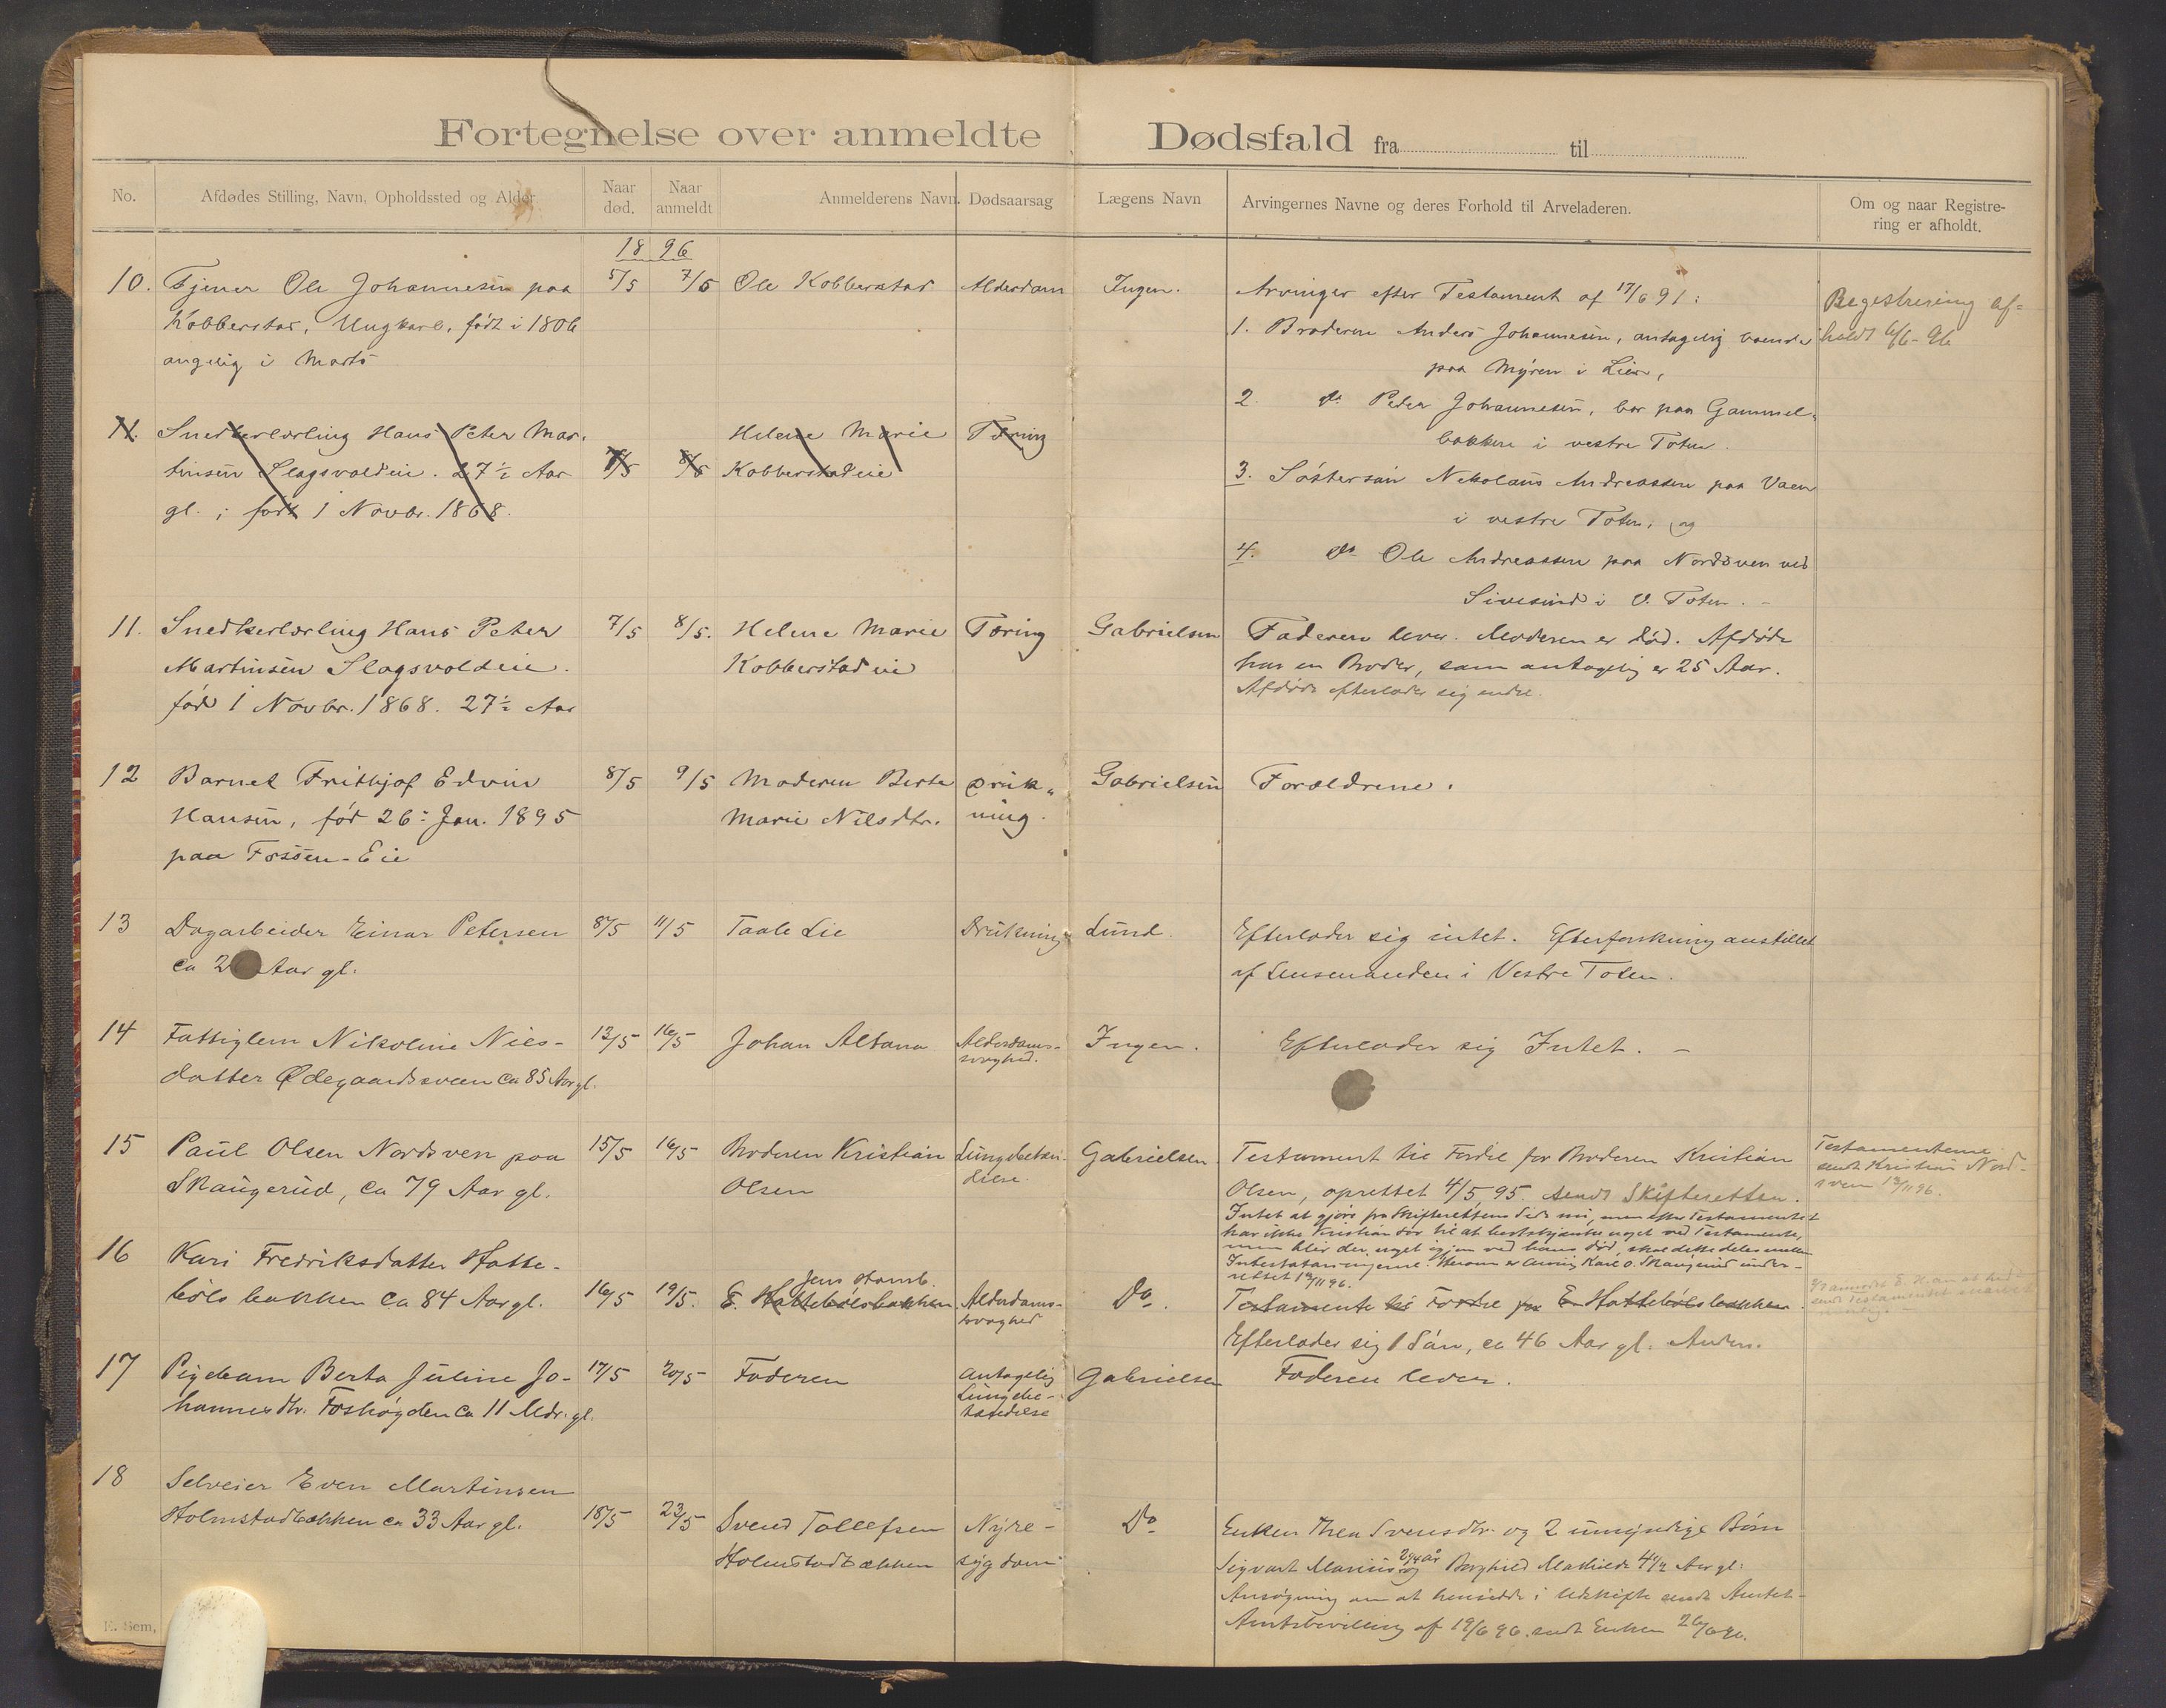 Fortegnelse over anmeldte Dødsfald fra til
No.
Afdødes Stilling, Navn, Opholdssted og Alder
Naar død.
Naar anmeldt
Anmelderens Navn.
Dødsaarsag
Lægens Navn
Arvingernes Navne og deres Forhold til Arveladeren.
Om og naar Registre-
ring er afholdt.
1896
10. Tjener Ole Johannesen paa
Kobberstad, Ungkarl, født i 1806
i Marts
5/5 7/5 Ole Kobberstad Alderdom Ingen.
Arvinger efter Testament af 17/6 91:
1. Broderen Anders Johannesen, antagelig boende
paa Myren i Lier,
2. do Peder Johannesen, bor paa Gammel-
bakken i vestre Toten.
3. Søstersøn Nikolaus Andreassen paa Vaen
i vestre Toten, og
4. do Ole Andreassen paa Nordsven ved
Sivesind i V. Toten. -
Registrering af-
holdt 6/6-96
11. Snedkerlærling Hans Peter Mar-
tinsen Slagsvoldeie. 27½ Aar
gl.; født 1 Novbr. 1868.
7/5 8/5 Helene Marie
Kobberstadeie
Tæring
11. Snedkerlærling Hans Peter
Martinsen Slagsvoldeie.
fød 1 Novbr. 1868. 27½ Aar
7/5 8/5. Helene Marie
Kobberstadeie
Tæring Gabrielsen
Faderen lever. Moderen er død. Afdøde
har en Broder, som antagelig er 25 Aar.
Afdøde efterlader sig
12 Barnet Frithjof Edvin
Hansen, fød 26: Jan. 1895
paa Fossen-Eie
8/5 9/5 Moderen Berte
Marie Nilsdtr.
Druk-
ning.
Gabrielsen Forældrene.
13 Dagarbeider Einar Petersen
ca 2 Aar gl.
8/5 11/5 Taale Lie Drukning Lund
Efterlader sig intet. Efterforskning anstillet
af Lensmanden i Vestre Toten.
14 Fattiglem Nikoline Niels-
datter Ødegaardsveen ca 85 Aar gl.
13/5 16/5 Johan Alfana Alderdoms-
svaghed.
Ingen. Efterlader sig Intet. -
15 Paul Olsen Nordsven paa
Skaugerud, ca 79 Aar gl.
15/5 16/5 Broderen Kristian
Olsen
Lungebetæn-
delse.
Gabrielsen.
Testament til Fordel for Broderen Kristian
Olsen, oprettet 4/5 95. sendt Skifteretten.
Intet at gjøre fra Skifterettens Side nu, men efter Testamentet
har ikke Kristian lov til at bortskjænke noget ved Testamente,
men blir der noget igjen ved hans død, skal dette deles mellem
Intestatarvingerne. Herom er Arving Karl O. Skaugerud under-
rettet 19/11 96.
Testamenterne
sendt Kristian Nord-
sven 19/11 96.
16 Kari Fredriksdatter Hatte-
bølsbakken ca 84 Aar gl.
16/5 19/5. E. Hattebølsbakken
Alderdoms-
svaghed
Do.
Testamente til Fordel for E. Hattebølsbakken.
Efterlader sig 1 Søn, ca 46 Aar gl. Anders.
17 Pigebarn Berta Juline Jo-
hannesdtr. Foshøgden ca 11 Mdr. gl.
17/5 20/5 Faderen
Antagelig
Lungebe-
tændelse
Gabrielsen Faderen lever.
18 Selveier Even Martinsen
Holmstadbakken ca 33 Aar gl.
18/5 23/5 Svend Tollefsen
Holmstadbakken
Nyre-
sygdom
Do
Enken Thea Svensdtr. og 2 umyndige Børn
Sigvart Marius 2¼ år og Borghild Mathilde 4½ Aar gl.
Ansøgning om at hensidde i Uskifte sendt Amtet-
Amtsbevilling af 19/6 96. sendt Enken 26/6 96.
E. Sem,